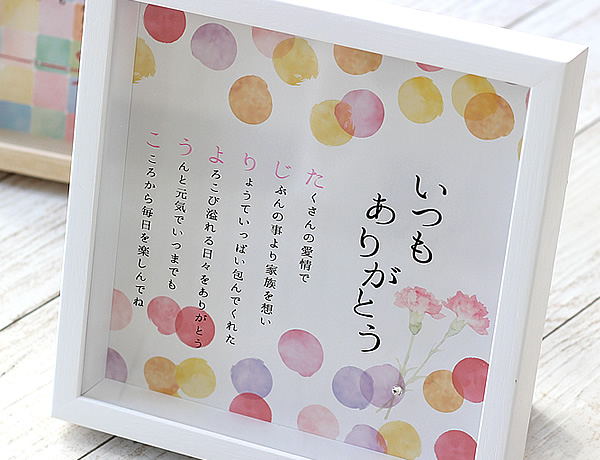 いつも
ありがとう
たくさんの愛情で
じぶんの事より家族を想い
りょうていっぱい包んでくれた
よろこび溢れる日々をありがとう
うんと元気でいつまでも
こころから毎日を楽しんでね